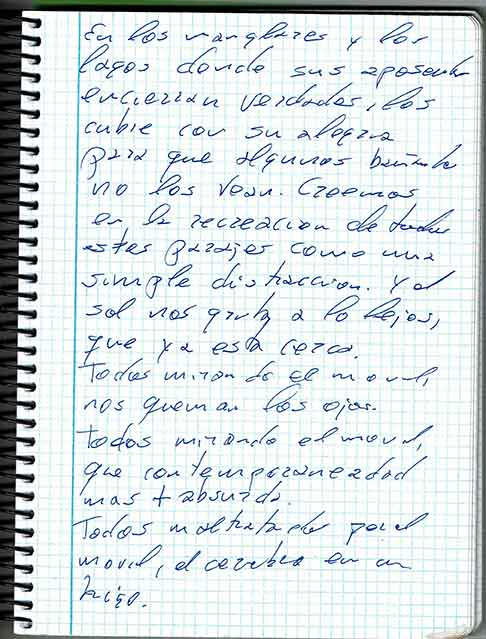 En los manglares y los
lagos donde sus aposentos
encierran verdades, los
cubre con su alegria
para que algunos
no los vean. Creemos
en la recreacion de todos
estos parajes como una
simple distraccion. Y el
sol nos grita a lo lejos,
que ya esta cerca.
Todos mirando el movil,
nos queman los ojos.
Todos mirando el movil,
que contemporaneadad
mas + absurda.
Todos maltratados por el
movil, el cerebro en un
higo.